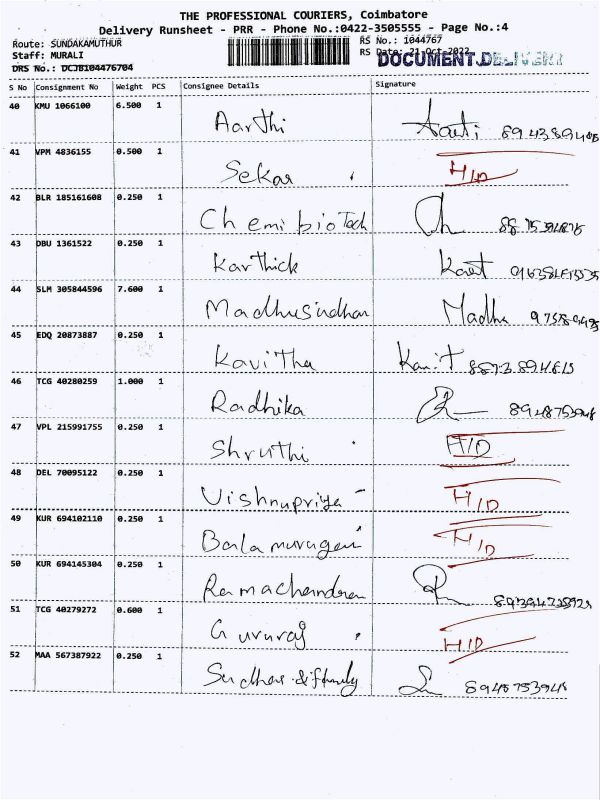 THE PROFESSIONAL COURIERS, Coimbatore
Delivery Runsheet - PRR - Phone No.:0422-3505555 - Page No.:4
Route: SUNDAKAMUTHUR
RS No.: 1044767
Staff: MURALI
RS Date: 21-Oct-2022
DOCUMENT.DELIVERY
DRS No.: DCJB104476704
S No Consignment No Weight PCS Consignee Details Signature
40 KMU 1066100 6.500 1 Aarthi
41 VPM 4836155 0.500 1 Sekar H/D
42 BLR 185161608 0.250 1 Chemi bioTech
43 DBU 1361522 0.250 1 Karthick
44 SLM 305844596 7.600 1 Madhusudhan Madhu
45 EDQ 20873887 0.250 1 Kavitha
46 TCG 40280259 1.000 1 Radhika 8948753948
47 VPL 215991755 0.250 1 Shruthi H/D
48 DEL 70095122 0.250 1 Vishnupriya H/D
49 KUR 694102110 0.250 1 Balamurugan H/D
50 KUR 694145304 0.250 1 Ramachandran
51 TCG 40279272 0.600 1 Gururaj H/D
52 MAA 567387922 0.250 1 Sudhar & family 8948753948